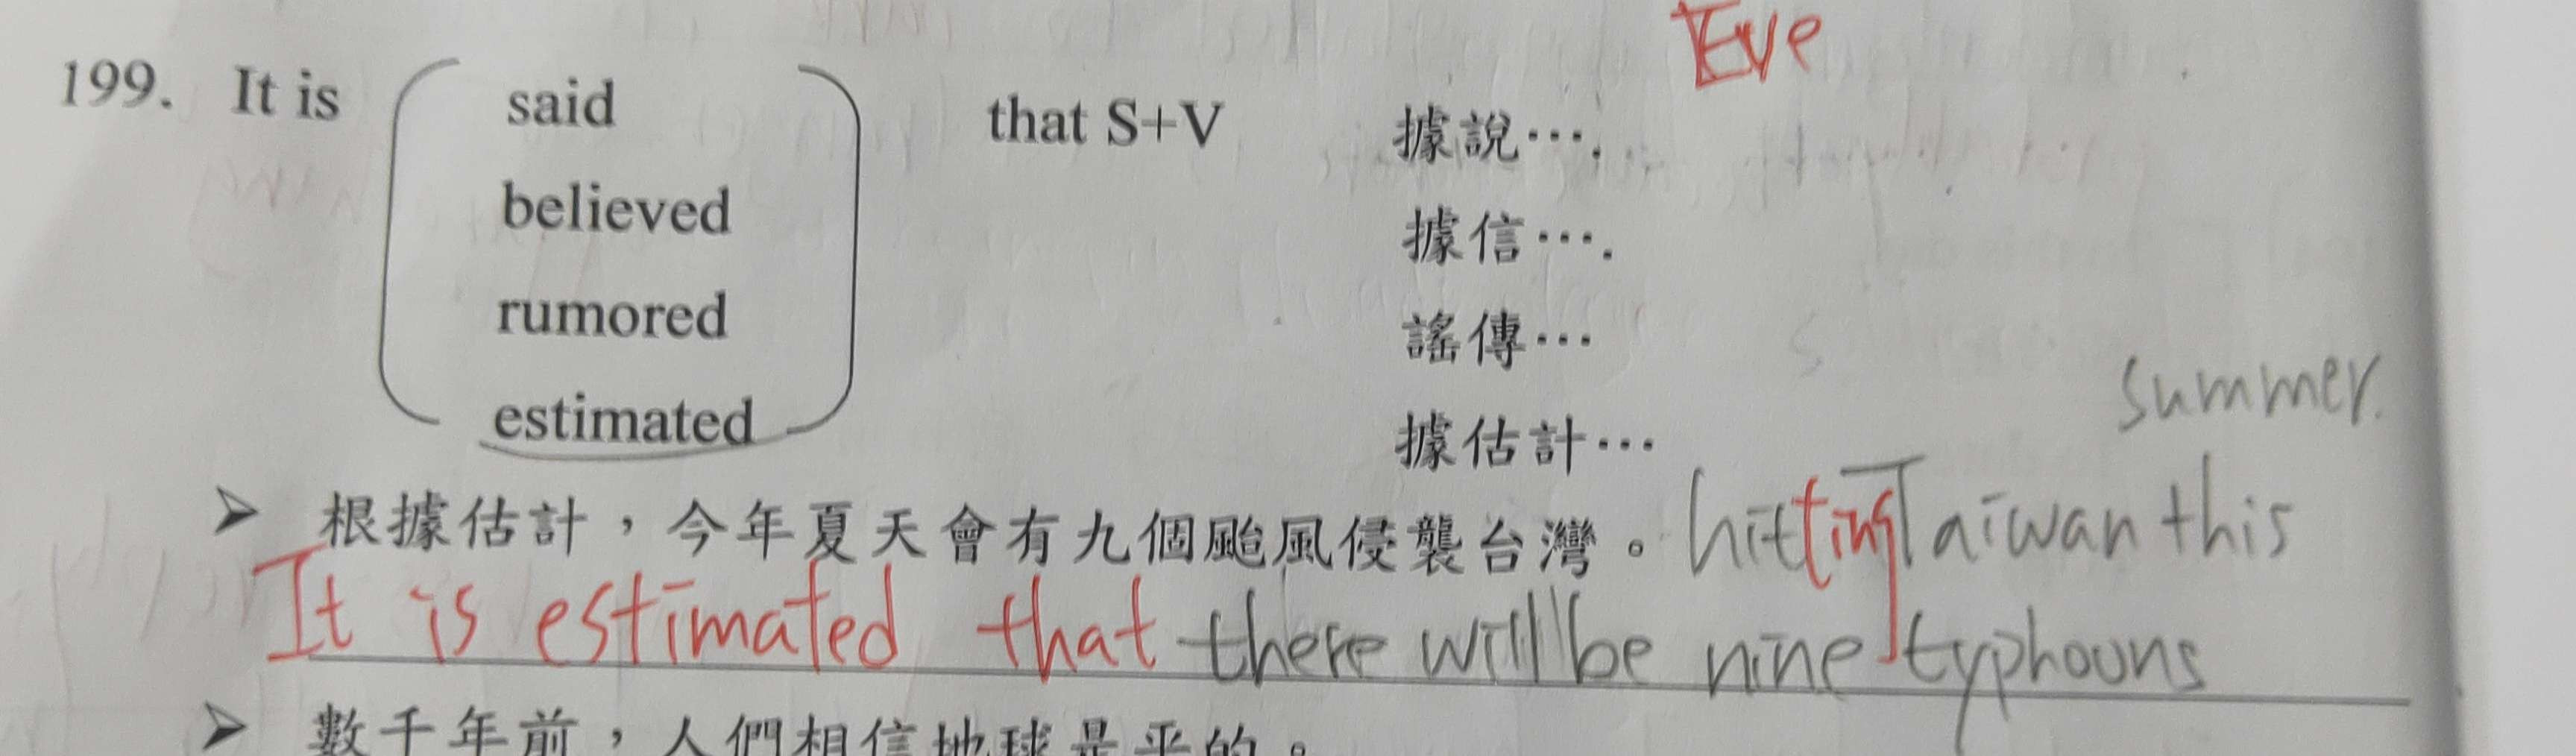 Eve
199. It is said that S+V 據說….
believed 據信….
rumored 謠傳…
estimated 據估計…
summer.
➢ 根據估計，今年夏天會有九個颱風侵襲台灣。 hitting Taiwan this
It is estimated that there will be nine typhoons
➢ 數千年前，人們相信地球是平的。